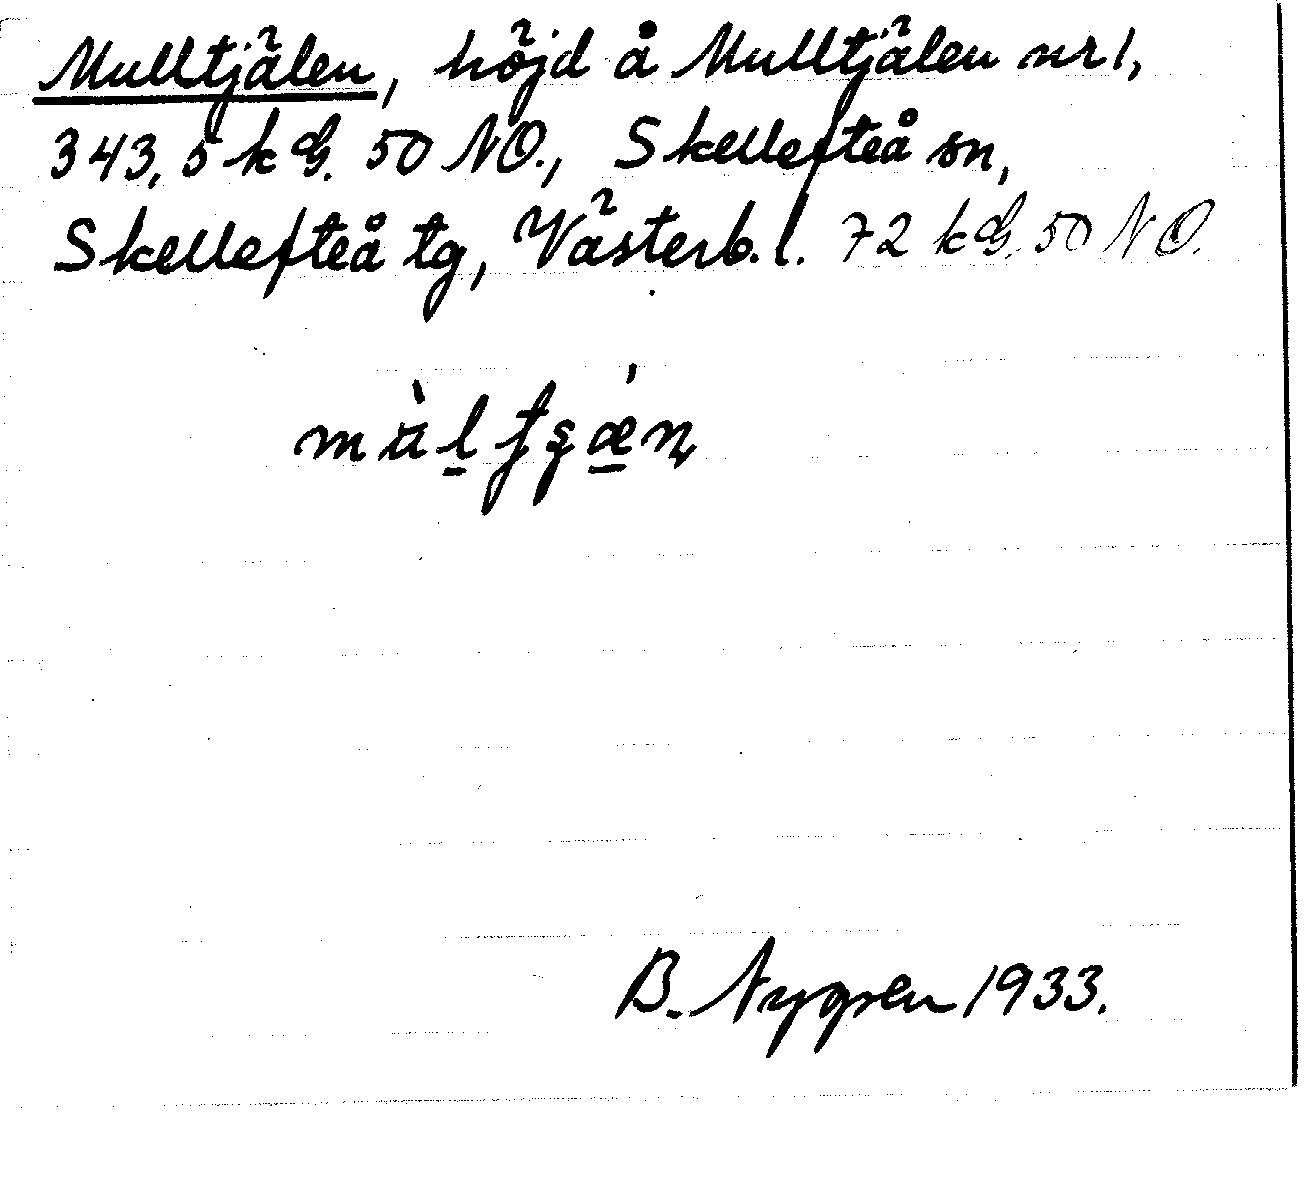 Mulltjälen, höjd å Mulltjälen nr 1,
343,5 k G. 50 NO., Skellefteå sn,
Skellefteå tg, Västerb. l. 72 k G. 50 NO.
B. Nygren 1933.